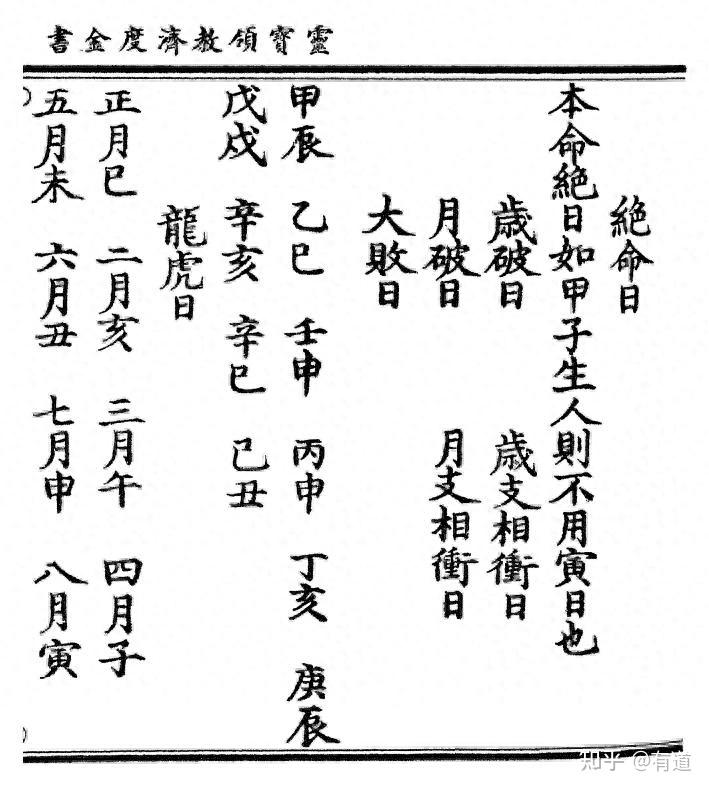 靈寶領教濟度金書
絕命日
本命絕日如甲子生人則不用寅日也
歲破日 歲支相衝日
月破日 月支相衝日
大敗日
甲辰 乙巳 壬申 丙申 丁亥 庚辰
戊戌 辛亥 辛巳 己丑
龍虎日
正月巳 二月亥 三月午 四月子
五月未 六月丑 七月申 八月寅
知乎 @有道